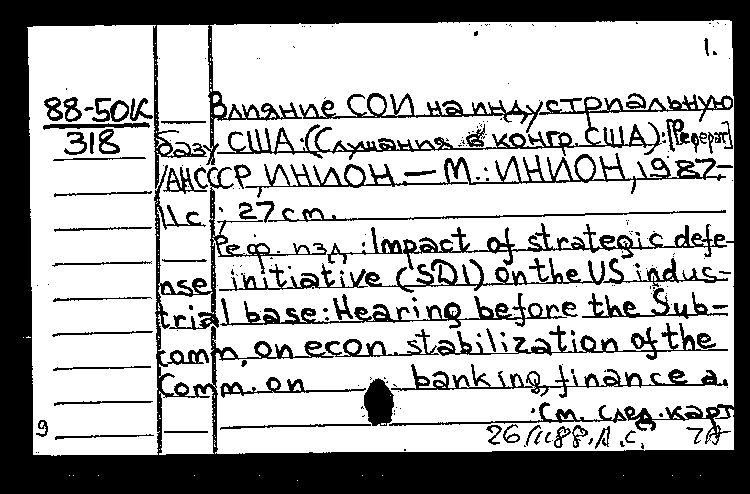 1.
88-50К
318
Влияние СОИ на индустриальную
базу США: (Слушания в конгр. США): [Реферат]
/АН СССР, ИНИОН. — М.: ИНИОН, 1987.—
11с.; 27 cm.
Реф. изд.: Impact of strategic defe-
nse initiative (SDI) on the US indus-
trial base: Hearing before the Sub-
comm. on econ. stabilization of the
Comm. on banking, finance a.
См. след. карт
9